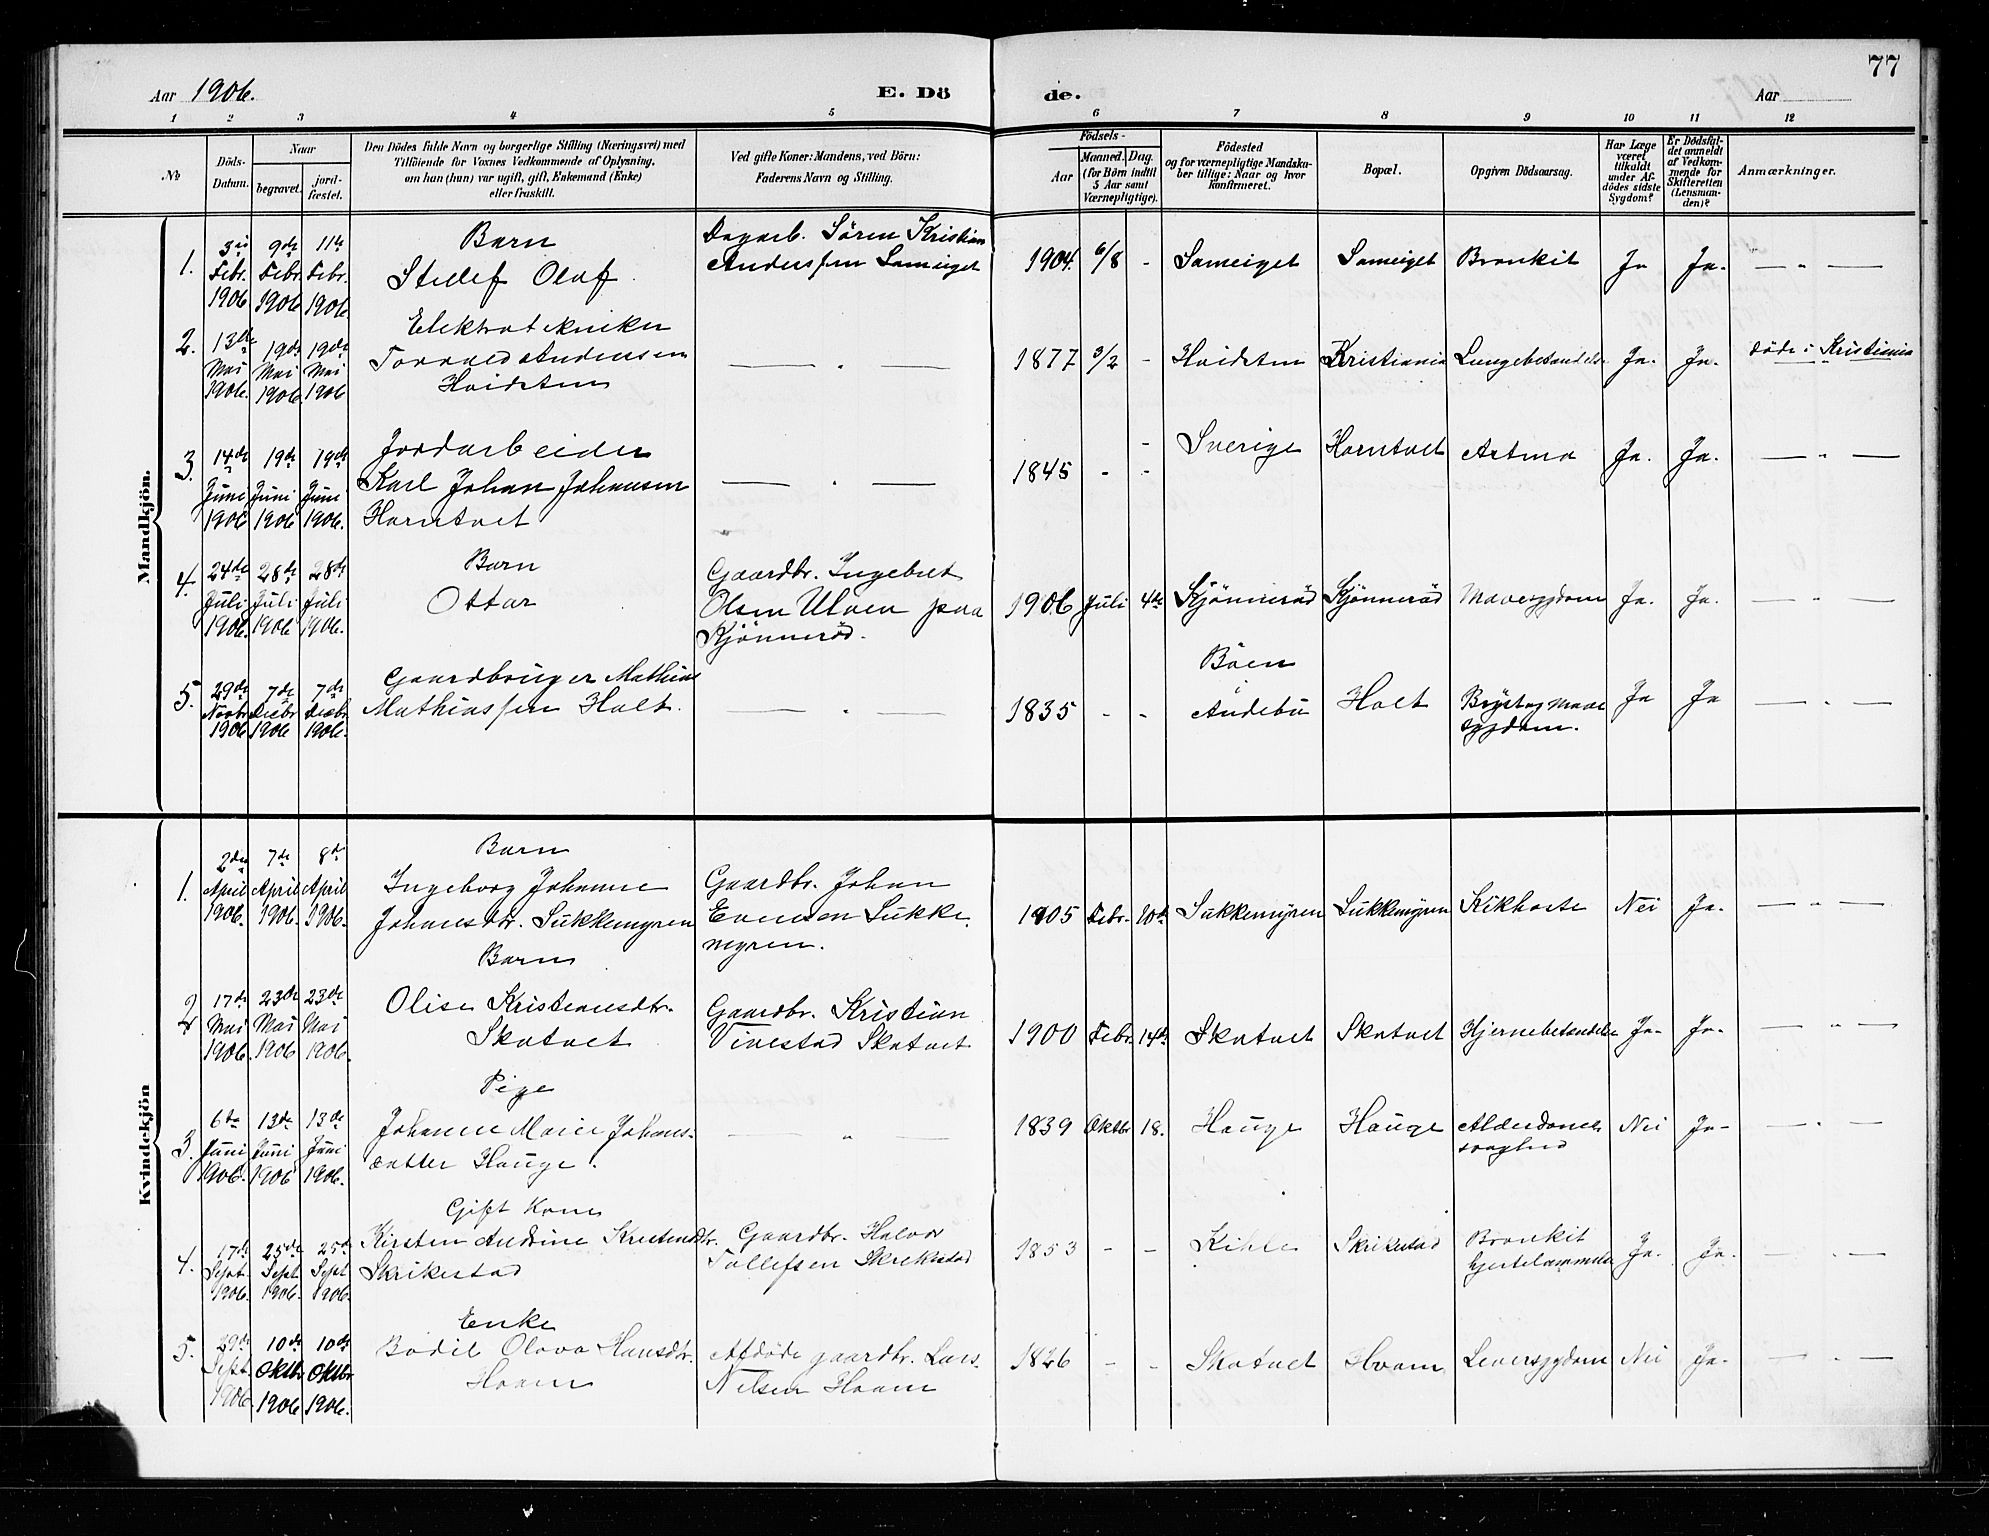 77
Aar 1906. E. Dö de. Aar
1 2 3 4 5 6 7 8 9 10 11 12
No
Döds-Datum.
Naar
begravet.
jord-fæstet.
Den Dödes fulde Navn og borgerlige Stilling (Næringsvei) med
Tilföiende for Voxnes Vedkommende af Oplysning,
om han (hun) var ugift, gift, Enkemand (Enke)
eller fraskilt.
Ved gifte Koner: Mandens, ved Börn:
Faderens Navn og Stilling.
Födsels-
Aar
Maaned. Dag.
(for Börn indtil
5 Aar samt
Værnepligtige).
Födested
og for værnepligtige Mandska-
ber tillige: Naar og hvor
konfirmeret.
Bopæl.
Opgiven Dödsaarsag.
Har Læge
været
tilkaldt
under Af-
dödes sidste
Sygdom?
Er Dödsfal-
det anmeldt
af Vedkom-
mende for
Skifteretten
(Lensman-
den)?
Anmærkninger.
Mandkjön.
1. 3die Febr. 1906 9de Febr. 1906 11te Febr. 1906
Barn
Olaf
Dagarb. Sören Kristian
Anderssen Sameiget
1904. 6/8 - Sameiget Sameiget Bronkit Ja Ja. — " —
2. 13de Mai 1906. 19de Mai 1906. 19de Mai 1906
Elektrotekniker
Torvald Andersen
Hvidsten
— " —
1877 3/2 - Hvidsten Kristiania Lungebetændelse Ja. Ja. döde i Kristiania
3. 14de Juni 1906 19de Juni 1906 19de Juni 1906.
Jordarbeider
Karl Johan Johansen
Horntvet
— " —
1845 - - Sverige Horntvet Astma Ja. Ja. — " —
4. 24de Juli 1906. 28de Juli 1906 28de Juli 1906.
Barn
Ottar
Gaardbr. Ingebret
Olsen Ulven paa
Kjönnerød.
1906 Juli 4de Kjönnerød Kjönnerød Mavesygdom Ja. Ja. — " —
5. 29de Novbr. 1906 7de Decbr. 1906 7de Decbr. 1906.
Gaardbruger Mathias
Mathiassen Holt.
— " —
1835 - - Böen
Andebu Holt Bryst og Mave
sygdom. Ja Ja — " —
Kvindekjön
1. 2den April 1906. 7de April 1906. 8de April 1906.
Barn
Ingeborg Johanne
Johansdtr. Sukkemyren
Gaardbr. Johan
Evensen Sukke-
myren.
1905 Febr. 10de Sukkemyren Sukkemyren Kikhoste Nei Ja. — " —
2 17de Mai 1906. 23de Mai 1906 23de Mai 1906.
Barn
Olise Kristiansdtr.
Skatvet
Gaardbr. Kristian
Vivestad Skatvet
1900 Febr. 14de Skatvet Skatvet Hjernebetændelse Ja- Ja- — " —
3. 6te Juni 1906. 13de Juni 1906 13de Juni 1906.
Pige
Johanne Marie Johans-
datter Hauge.
— " —
1839 Oktbr 18. Hauge Hauge Alderdoms
svaghed Nei Ja- — " —
4. 17de Sept. 1906. 25de Sept 1906. 25de Sept 1906.
Gift Kone
Kirsten Andrine Kristensdtr.
Skrikestad
Gaardbr. Halvor
Tollefsen Skrikestad
1853 - - Kihle Skrikestad Bronkit
hjertelammelse Ja. Ja. — " —
5. 29de Sept. 1906. 10de Oktbr 1906 10de Oktbr 1906.
Enke
Bodil Olava Hansdtr.
Hvam
Afdöde gaardbr. Lars
Nilsen Hvam
1826 - - Skatvet Hvam Leversygdom Nei Ja. — " —